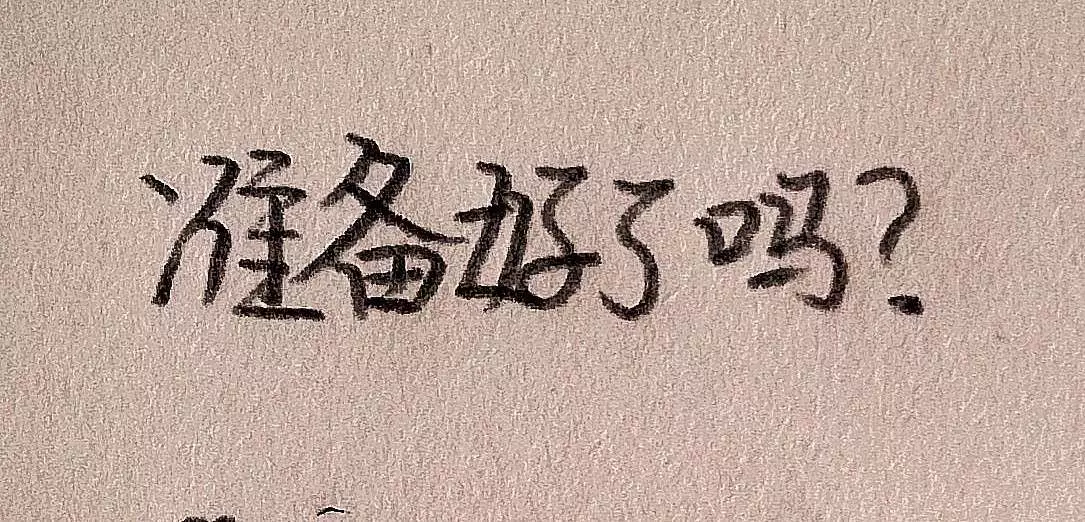 准备好了吗?